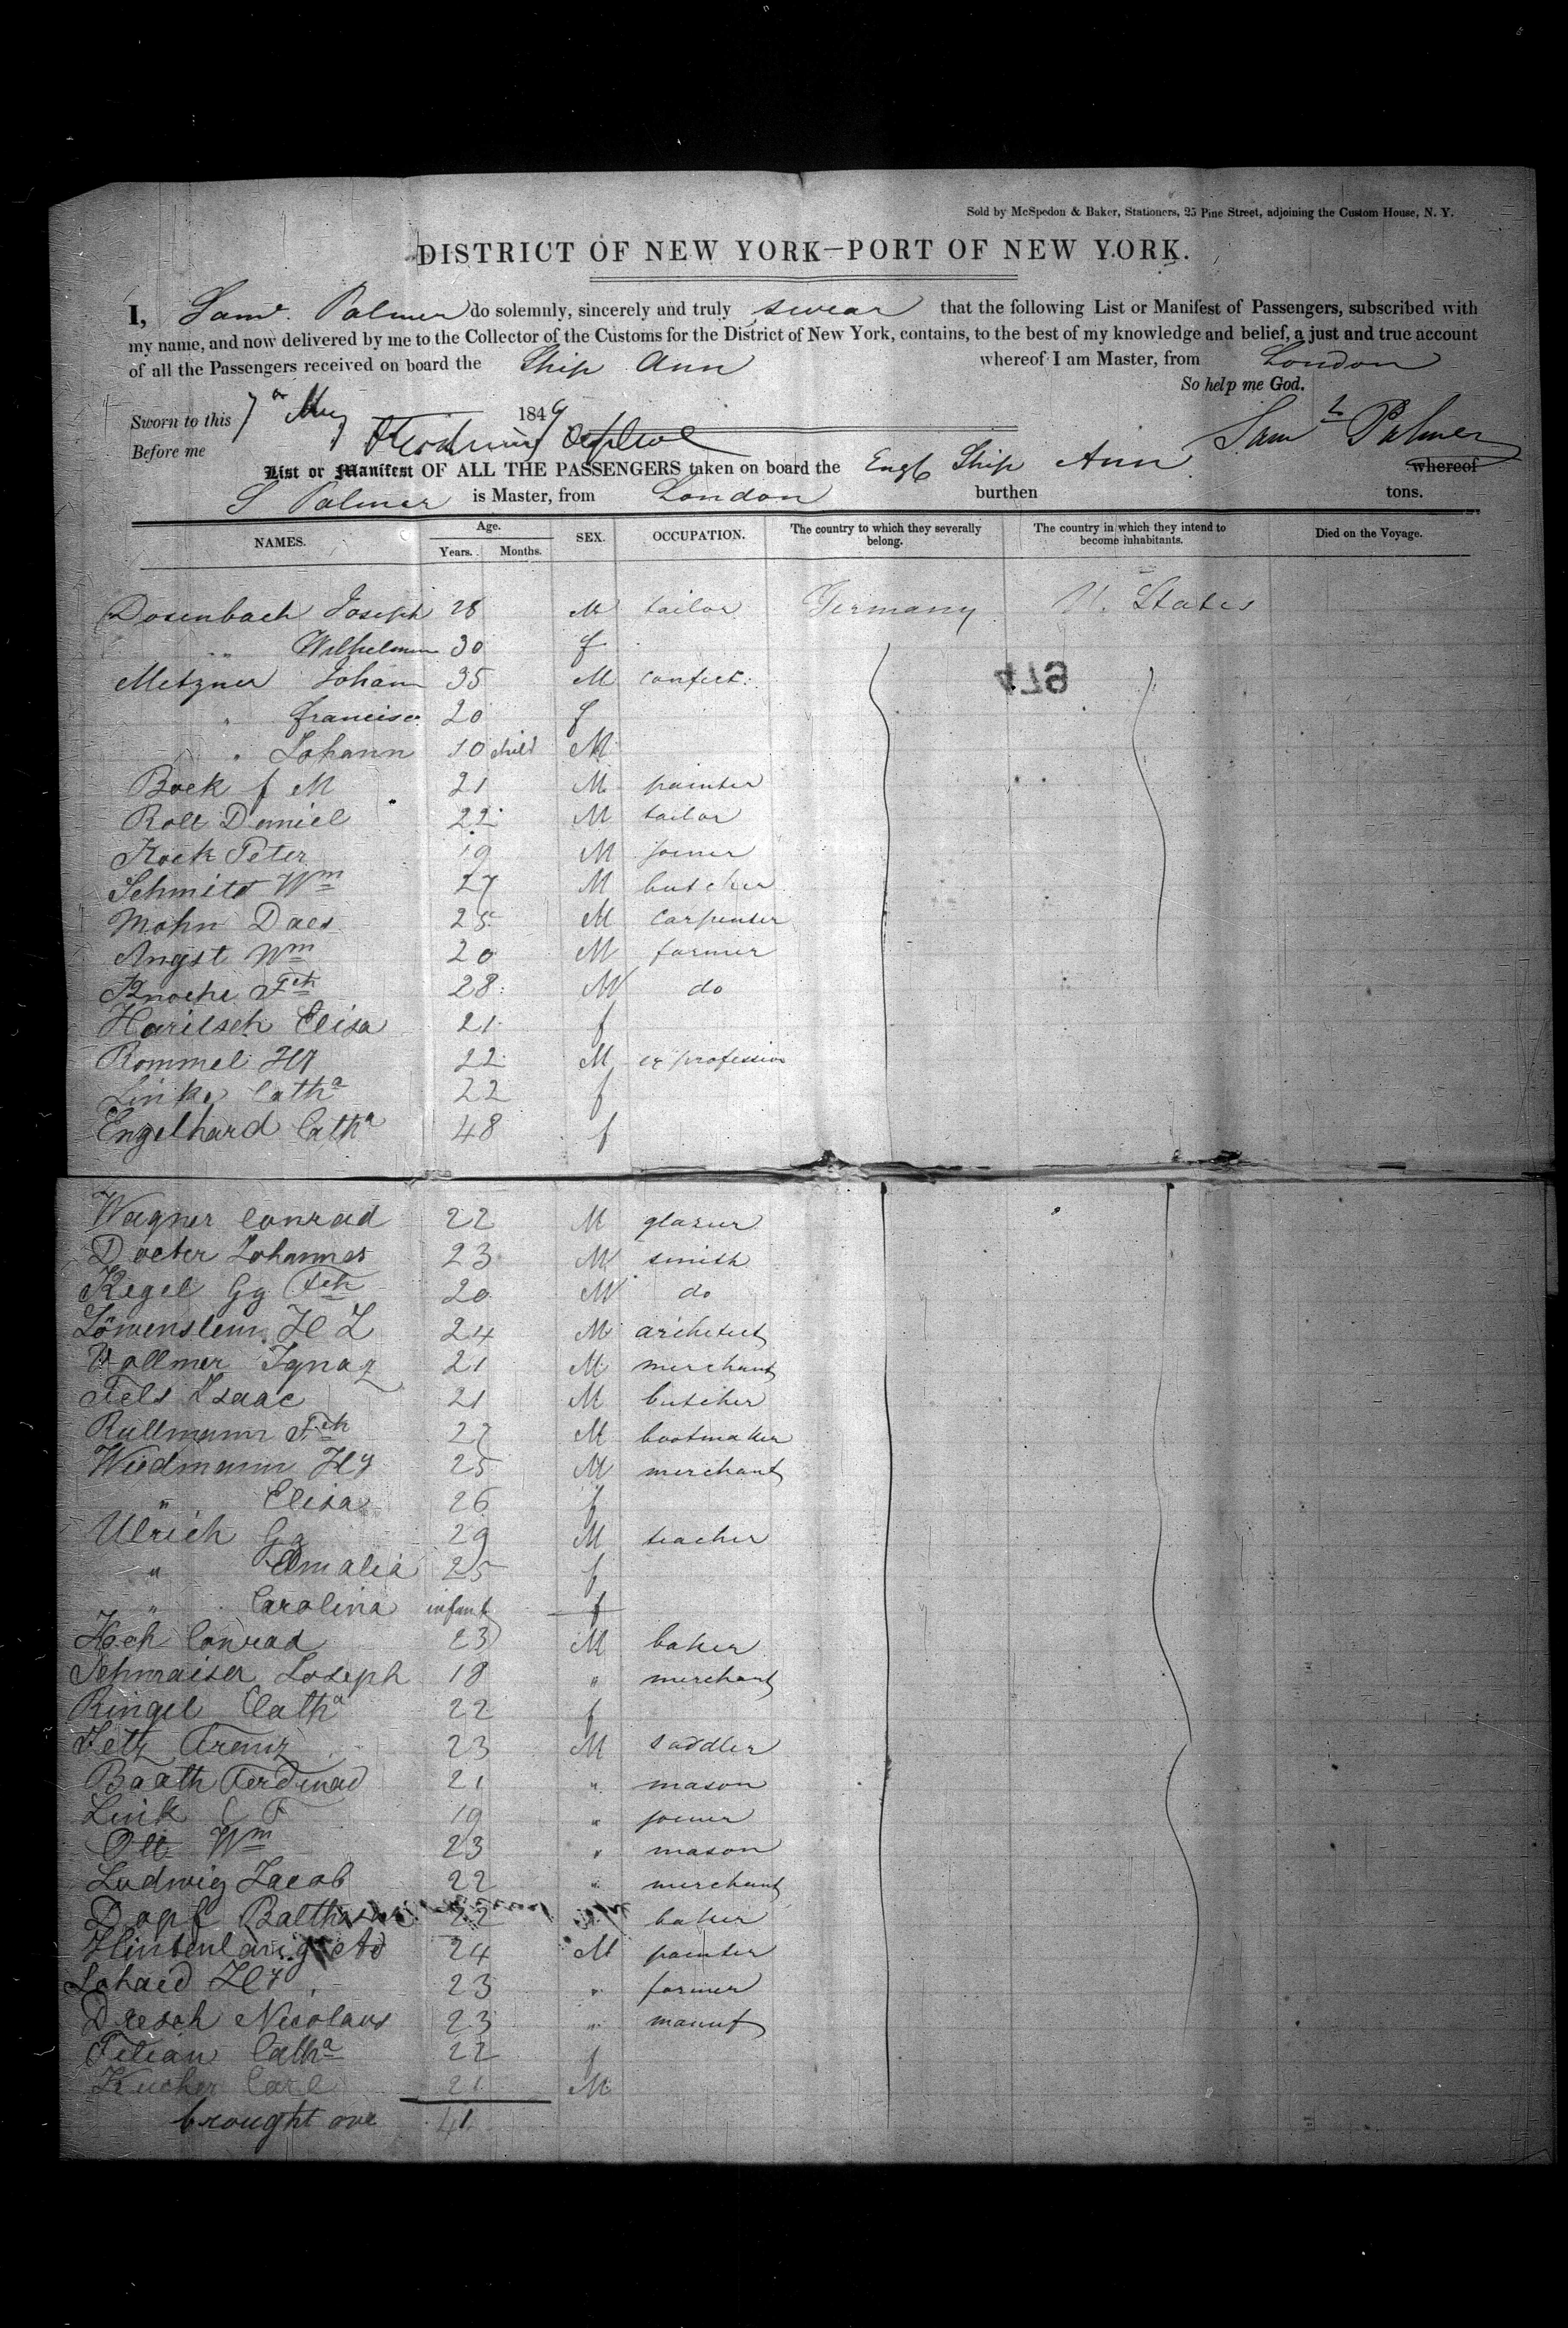 Sold by McSpedon & Baker, Stationers, 25 Pine Street, adjoining the Custom House, N. Y.
DISTRICT OF NEW YORK—PORT OF NEW YORK.
I, Saml. Palmer do solemnly, sincerely and truly swear that the following List or Manifest of Passengers, subscribed with
my name, and now delivered by me to the Collector of the Customs for the District of New York, contains, to the best of my knowledge and belief, a just and true account
of all the Passengers received on board the Ship Ann whereof I am Master, from London
So help me God.
Sworn to this 7th May 1849
Before me Saml Palmer
List or Manifest OF ALL THE PASSENGERS taken on board the Engl Ship Ann whereof
S Palmer is Master, from London burthen tons.
NAMES. Age. Years. Months. SEX. OCCUPATION. The country to which they severally belong. The country in which they intend to become inhabitants. Died on the Voyage.
Dosenbach Joseph 28 M tailor Germany U. States
" Wilhelmin 30 f
Metzner Johann 35 M confect: 479
" francisca 20 f
" Johann 10 child M
Bock f M 21 M painter
Roll Daniel 22 M tailor
Kock Peter 19 M joiner
Schmitt Wm 27 M butcher
Mohn 25 M carpenter
Angst Wm 20 M farmer
Knoche Fch 28 M do
Haritsch Elisa 21 f
Rommel Hy 22 M profession
Link Catha 22 f
Engelhard Catha 48 f
Wagner Conrad 22 M glazier
Docter Johannes 23 M smith
Kegel Gg Fch 20 M do
Löwenstein H L 24 M architect
Vollmer Ignaz 21 M merchant
Fels Isaac 21 M butcher
Rullmann Fch 27 M bootmaker
Wiedmann Hy 25 M merchant
" Elisa 26 f
Ulrich Gg 29 M teacher
" Amalia 25 f
" Carolina infant f
Hoch Conrad 23 M baker
Schmaiser Joseph 18 " merchant
Ringel Catha 22 f
Letz Franz 23 M saddler
Baath Ferdinad 21 " mason
Link C F 19 " joiner
Ott Wm 23 " mason
Ludwig Jacob 22 " merchant
Dopf Balthasar 22 baker
Hintenlang Ad 24 M painter
Lohaed Hy 23 " farmer
Dresch Nicolaus 23 " manuf
Filian Catha 22 f
Kucher Carl 21 M
brought ove 41